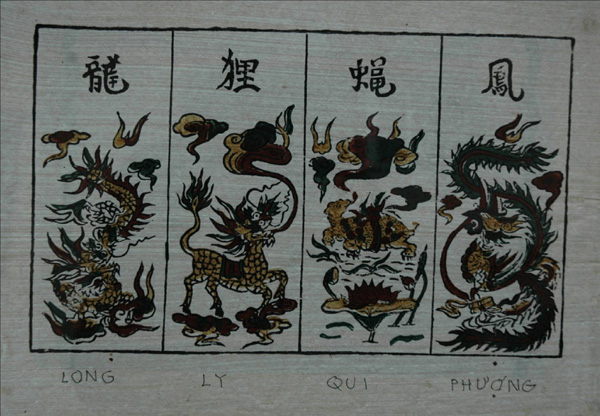 龍 狸 蝇 鳳
LONG LY QUI PHƯƠNG